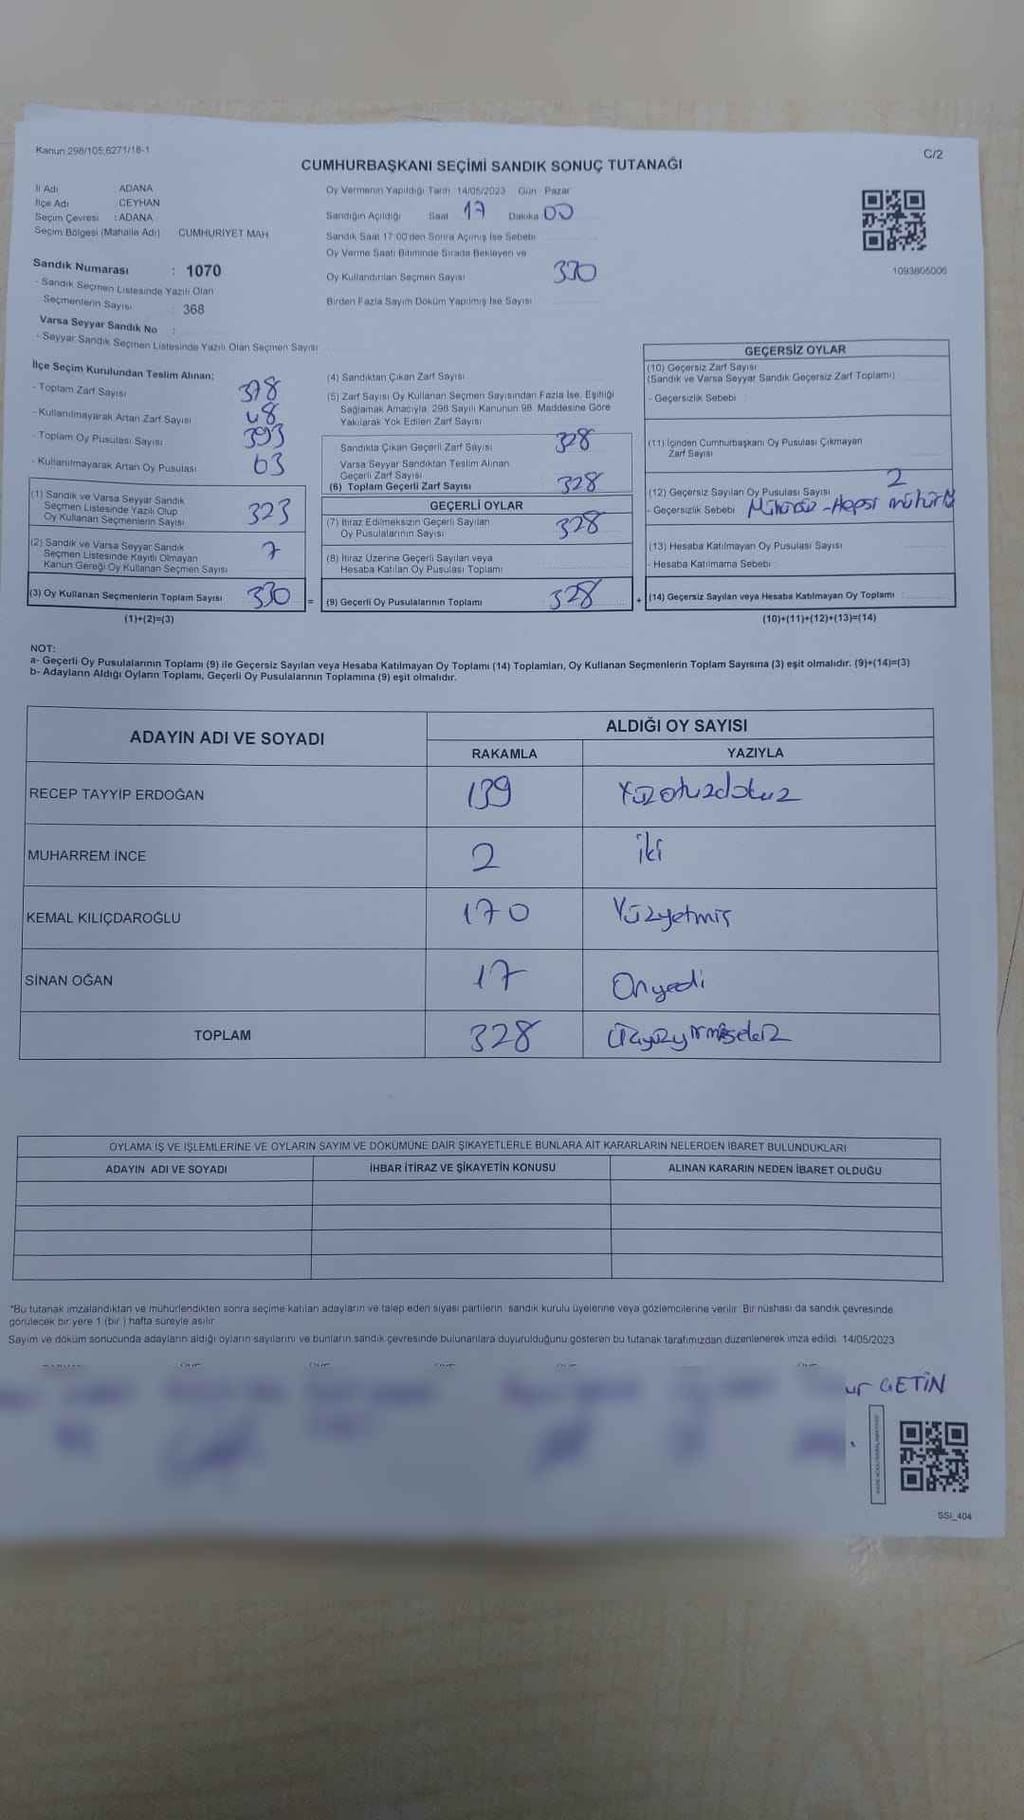 Kanun 298/105,6271/18-1
C/2
CUMHURBAŞKANI SEÇİMİ SANDIK SONUÇ TUTANAĞI
İl Adı : ADANA
İlçe Adı : CEYHAN
Seçim Çevresi : ADANA
Seçim Bölgesi (Mahalle Adı) CUMHURİYET MAH
Sandık Numarası : 1070
- Sandık Seçmen Listesinde Yazılı Olan
Seçmenlerin Sayısı : 368
Varsa Seyyar Sandık No :
- Seyyar Sandık Seçmen Listesinde Yazılı Olan Seçmen Sayısı
Oy Vermenin Yapıldığı Tarih 14/05/2023 Gün : Pazar
Sandığın Açıldığı Saat 17 Dakika 00
Sandık Saat 17:00'den Sonra Açılmış İse Sebebi
Oy Verme Saati Bitiminde Sırada Bekleyen ve
Oy Kullandırılan Seçmen Sayısı 330
Birden Fazla Sayım Döküm Yapılmış İse Sayısı
1093805006
İlçe Seçim Kurulundan Teslim Alınan;
- Toplam Zarf Sayısı 378
- Kullanılmayarak Artan Zarf Sayısı 48
- Toplam Oy Pusulası Sayısı 393
- Kullanılmayarak Artan Oy Pusulası 63
(1) Sandık ve Varsa Seyyar Sandık
Seçmen Listesinde Yazılı Olup
Oy Kullanan Seçmenlerin Sayısı 323
(2) Sandık ve Varsa Seyyar Sandık
Seçmen Listesinde Kayıtlı Olmayan
Kanun Gereği Oy Kullanan Seçmen Sayısı 7
(3) Oy Kullanan Seçmenlerin Toplam Sayısı 330 =
(1)+(2)=(3)
(4) Sandıktan Çıkan Zarf Sayısı
(5) Zarf Sayısı Oy Kullanan Seçmen Sayısından Fazla İse, Eşitliği
Sağlamak Amacıyla, 298 Sayılı Kanunun 98. Maddesine Göre
Yakılarak Yok Edilen Zarf Sayısı
Sandıkta Çıkan Geçerli Zarf Sayısı 328
Varsa Seyyar Sandıktan Teslim Alınan
Geçerli Zarf Sayısı
(6) Toplam Geçerli Zarf Sayısı 328
GEÇERLİ OYLAR
(7) İtiraz Edilmeksizin Geçerli Sayılan
Oy Pusulalarının Sayısı 328
(8) İtiraz Üzerine Geçerli Sayılan veya
Hesaba Katılan Oy Pusulası Toplamı
(9) Geçerli Oy Pusulalarının Toplamı 328 +
GEÇERSİZ OYLAR
(10) Geçersiz Zarf Sayısı
(Sandık ve Varsa Seyyar Sandık Geçersiz Zarf Toplamı)
- Geçersizlik Sebebi
(11) İçinden Cumhurbaşkanı Oy Pusulası Çıkmayan
Zarf Sayısı
(12) Geçersiz Sayılan Oy Pusulası Sayısı 2
- Geçersizlik Sebebi Mühürsüz - Hepsi mühürlü
(13) Hesaba Katılmayan Oy Pusulası Sayısı
- Hesaba Katılmama Sebebi
(14) Geçersiz Sayılan veya Hesaba Katılmayan Oy Toplamı
(10)+(11)+(12)+(13)=(14)
NOT:
a- Geçerli Oy Pusulalarının Toplamı (9) ile Geçersiz Sayılan veya Hesaba Katılmayan Oy Toplamı (14) Toplamları, Oy Kullanan Seçmenlerin Toplam Sayısına (3) eşit olmalıdır. (9)+(14)=(3)
b- Adayların Aldığı Oyların Toplamı, Geçerli Oy Pusulalarının Toplamına (9) eşit olmalıdır.
ADAYIN ADI VE SOYADI
ALDIĞI OY SAYISI
RAKAMLA YAZIYLA
RECEP TAYYİP ERDOĞAN 139 Yüzotuzdokuz
MUHARREM İNCE 2 iki
KEMAL KILIÇDAROĞLU 170 Yüzyetmiş
SİNAN OĞAN 17 Onyedi
TOPLAM 328 Üçyüzyirmisekiz
OYLAMA İŞ VE İŞLEMLERİNE VE OYLARIN SAYIM VE DÖKÜMÜNE DAİR ŞİKAYETLERLE BUNLARA AİT KARARLARIN NELERDEN İBARET BULUNDUKLARI
ADAYIN ADI VE SOYADI İHBAR İTİRAZ VE ŞİKAYETİN KONUSU ALINAN KARARIN NEDEN İBARET OLDUĞU
*Bu tutanak imzalandıktan ve mühürlendikten sonra seçime katılan adayların ve talep eden siyasi partilerin sandık kurulu üyelerine veya gözlemcilerine verilir. Bir nüshası da sandık çevresinde
görülecek bir yere 1 (bir ) hafta süreyle asılır
Sayım ve döküm sonucunda adayların aldığı oyların sayılarını ve bunların sandık çevresinde bulunanlara duyurulduğunu gösteren bu tutanak tarafımızdan düzenlenerek imza edildi. 14/05/2023
ur ÇETİN
SSI_404